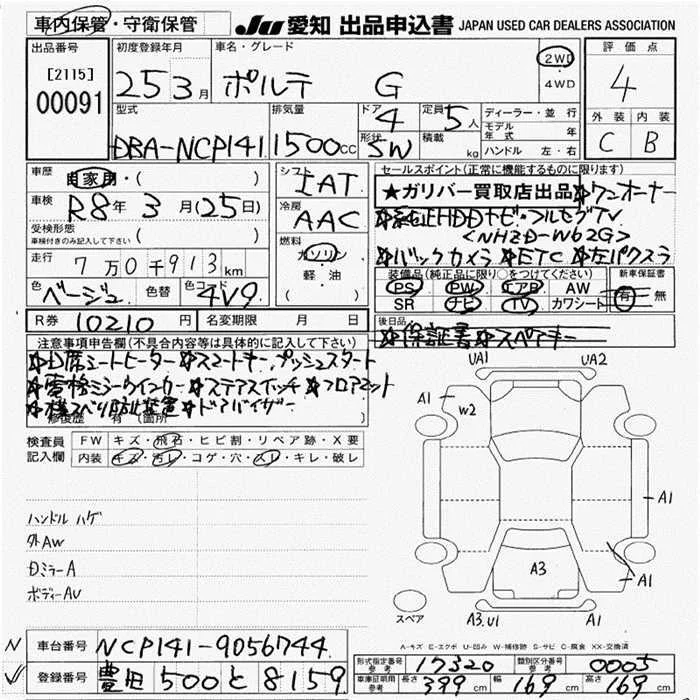 車内保管・守衛保管
JU 愛知 出品申込書 JAPAN USED CAR DEALERS ASSOCIATION
出品番号
[2115]
00091
初度登録年月
25 3月
車名・グレード
ポルテ G
2WD
4WD
評価点
4
外装 内装
C B
型式
DBA-NCP141
排気量
1500cc
ドア
4
形状
SW
定員
5人
積載 kg
ディーラー・並行
モデル年式 年
ハンドル 左・右
車歴
自家用・( )
車検
R8年 3月(25日)
受検形態
車検付きのみ記入して下さい ( )
走行
7万0千913km
色
ベージュ
色替
色コード
4V9
シフト
IAT
冷房
AAC
燃料
ガソリン
軽・油
( )
セールスポイント(正常に機能するものに限ります)
★ガリバー買取店出品☆ワンオーナー
☆純正HDDナビ・フルセグTV
<NHZD-W62G>
☆バックカメラ☆ETC☆左パワスラ
装備品(純正品に限り○をつけてください)
PS PW エアB AW
SR ナビ TV カワシート
新車保証書
有・無
R券 10210円
名変期限 月 日
後日品
☆保証書☆スペアキー
注意事項申告欄(不具合内容等は具体的に記入して下さい)
☆D席シートヒーター☆スマートキー、プッシュスタート
☆電格ミラーウインカー☆ステアスイッチ☆フロアマット
☆横スベリ防止装置☆ドアバイザー
修復歴 有(箇所
検査員記入欄
FW キズ・飛石・ヒビ割・リペア跡・X要
内装 キズ・汚レ・コゲ・穴・スレ・キレ・破レ
ハンドル ハゲ
外AW
DミラーA
ボディーAU
UA1 UA2
A1
W2
A1
A3
A1
スペア
A3.U1 A1
A-キズ E-エクボ U-凹み W-補修跡 S-サビ C-腐食 XX-交換済
N 車台番号 NCP141-9056744
登録番号 豊田 500 と 8159
形式指定番号 参考 17320
類別区分番号 参考 0005
車庫証明用 参考 長さ 399cm 幅 169cm 高さ 169cm